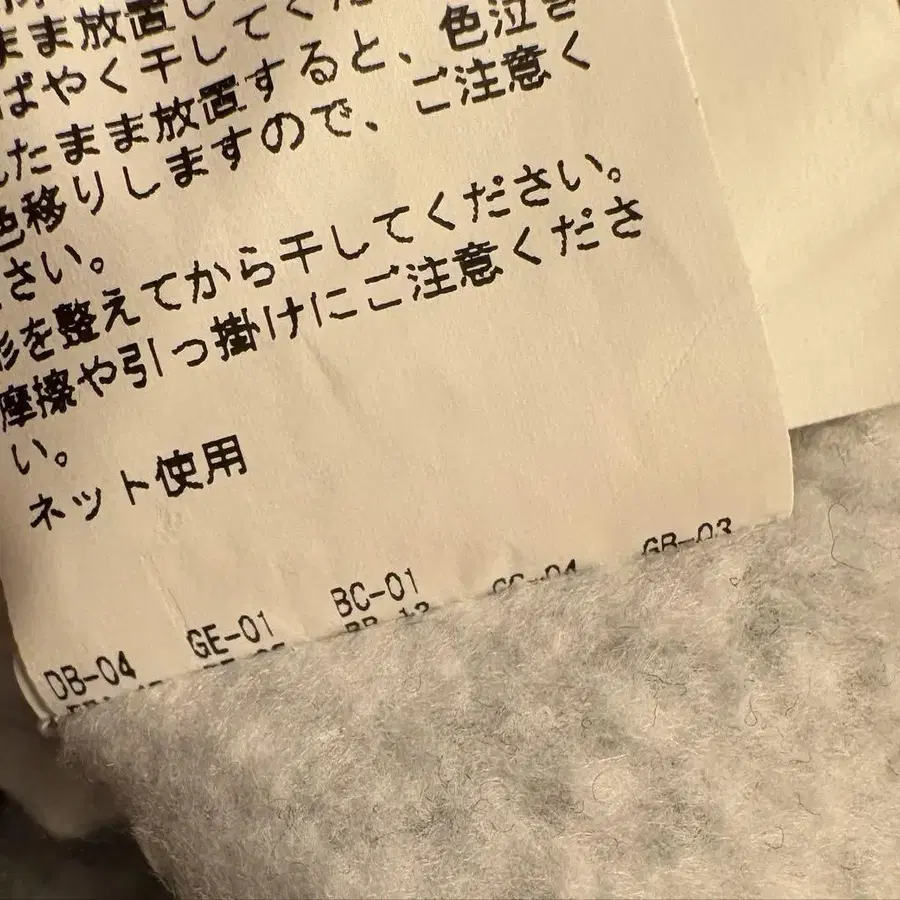 まま放置し
ばやく干してくだ
たまま放置すると、色泣き
色移りしますので、ご注意く
さい。
形を整えてから干してください。
摩擦や引っ掛けにご注意くださ
い。
ネット使用
DB-04 GE-01 BC-01 CC-04 GB-03